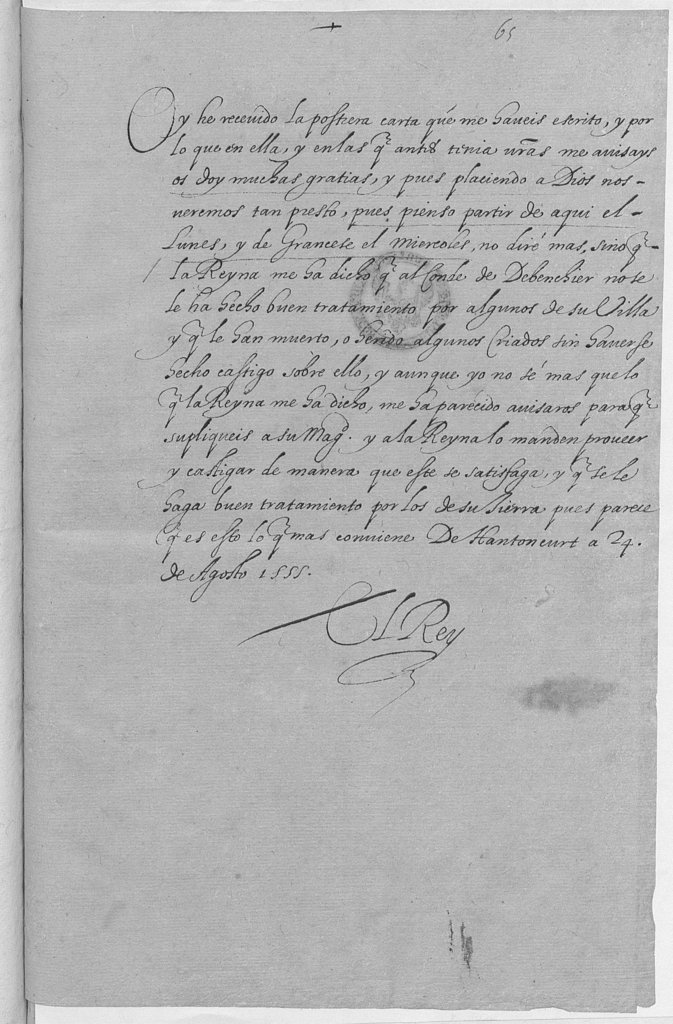 65
Oy he receuido la postrera carta que me haueis escrito, y por
lo que en ella, y en las q̃ antes tenia vr̃as me auisays
os doy muchas gratias, y pues placiendo a Dios nos-
veremos tan presto, pues pienso partir de aqui el-
Lunes, y de Grancete el Miercoles, no diré mas, sino q̃-
la Reyna me ha dicho q̃ al Conde de Debenchier no se
le ha hecho buen tratamiento por algunos de su Villa
y q̃ le han muerto, o herido algunos Criados sin hauerse
hecho castigo sobre ello, y aunque yo no sé mas que lo
q̃ la Reyna me ha dicho, me ha parecido auisaros para q̃
supliqueis a su Magd. y a la Reyna lo manden proueer
y castigar de manera que este se satisfaga, y q̃ se le
haga buen tratamiento por los de su tierra pues parece
q̃ es esto lo q̃ mas conuiene De Hantoncurt a 24.
de Agosto 1555.
El Rey